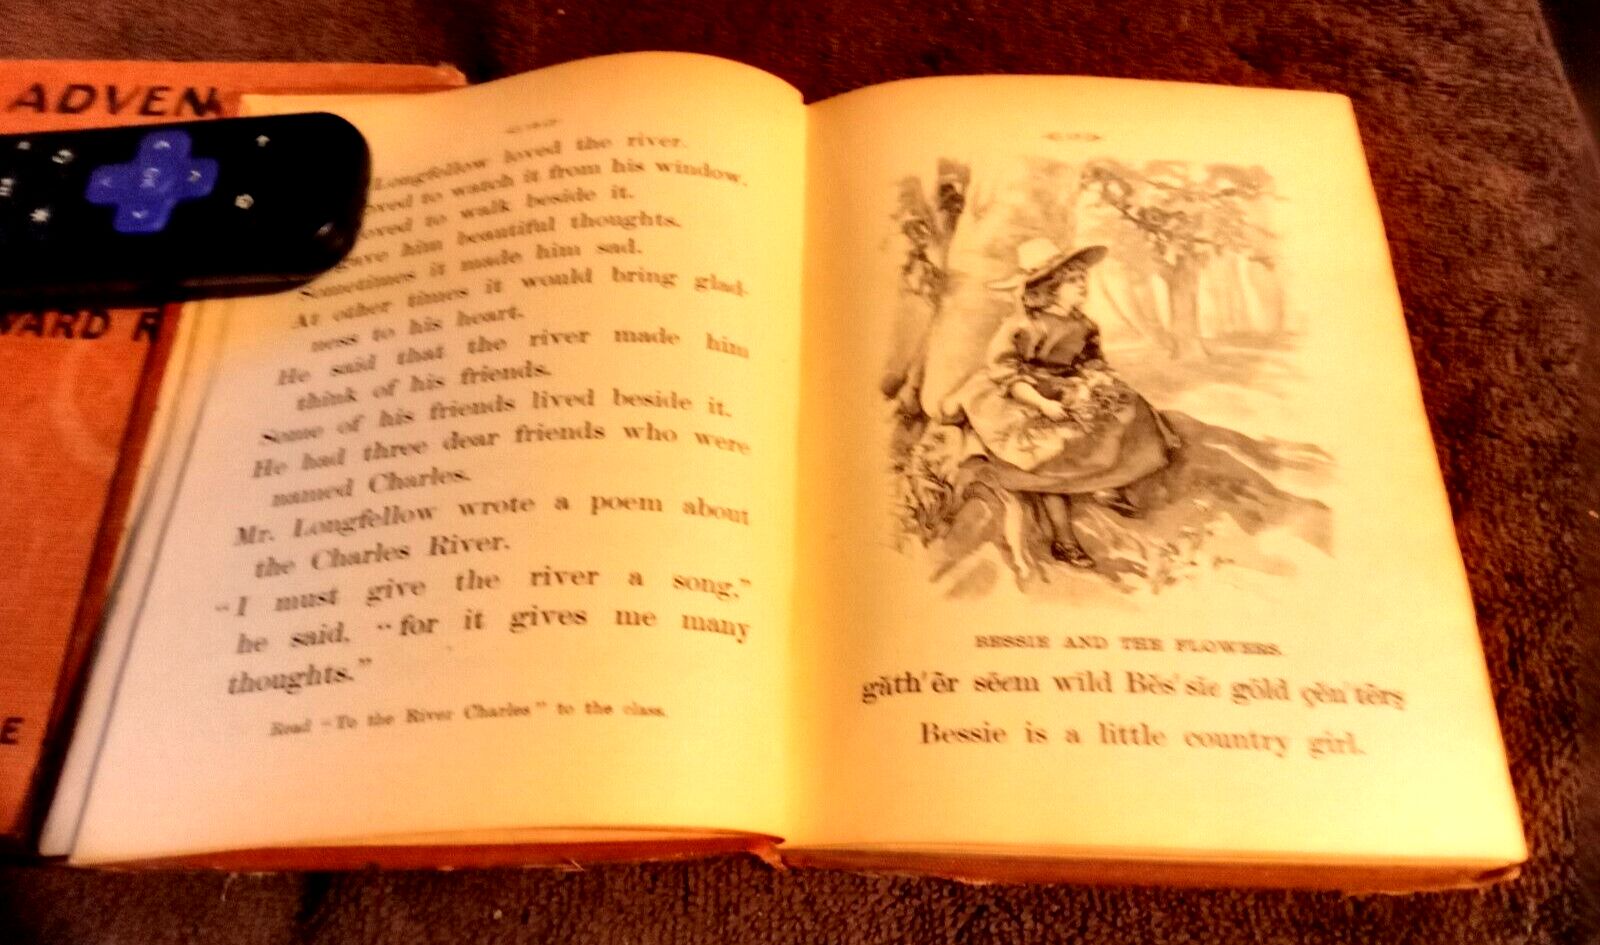 ADVEN
WARD R
E
Longfellow loved the river.
to watch it from his window.
to walk beside it.
him beautiful thoughts.
Sometimes it made him sad.
At other times it would bring glad-
ness to his heart.
He said that the river made him
think of his friends.
Some of his friends lived beside it.
He had three dear friends who were
named Charles.
Mr. Longfellow wrote a poem about
the Charles River.
“I must give the river a song,”
he said, “for it gives me many
thoughts.”
Read “To the River Charles” to the class.
BESSIE AND THE FLOWERS.
găth′ẽr sēēm wīld Bĕs′sie gōld çĕn′tẽrş
Bessie is a little country girl.